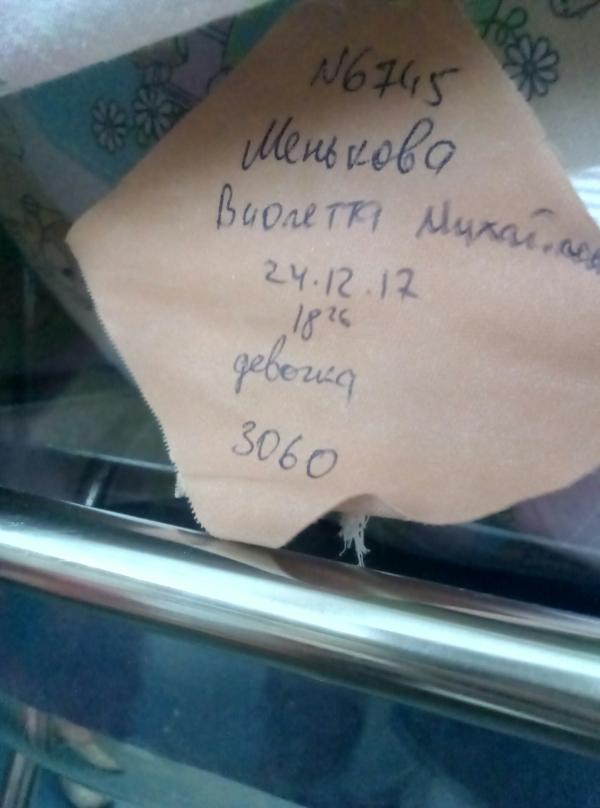 №6745
Менькова
Виолетта
24.12.17
18 26
девочка
3060